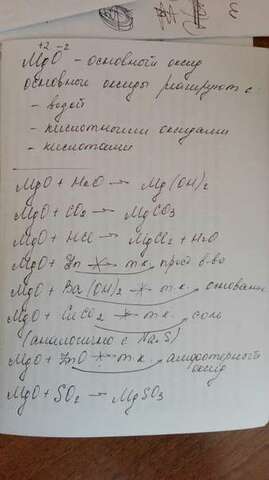 +2 -2
MgO - основной оксид
основные оксиды реагируют с:
- водой
- кислотными оксидами
- кислотами
MgO + H₂O → Mg(OH)₂
MgO + CO₂ → MgCO₃
MgO + HCl → MgCl₂ + H₂O
MgO + Zn ↛ т.к. прост. в-во
MgO + Ba(OH)₂ ↛ т.к. основание
MgO + ↛ т.к. соли
(аналогично с Na₂S)
MgO + ZnO ↛ т.к. амфотерного
оксид
MgO + SO₂ → MgSO₃